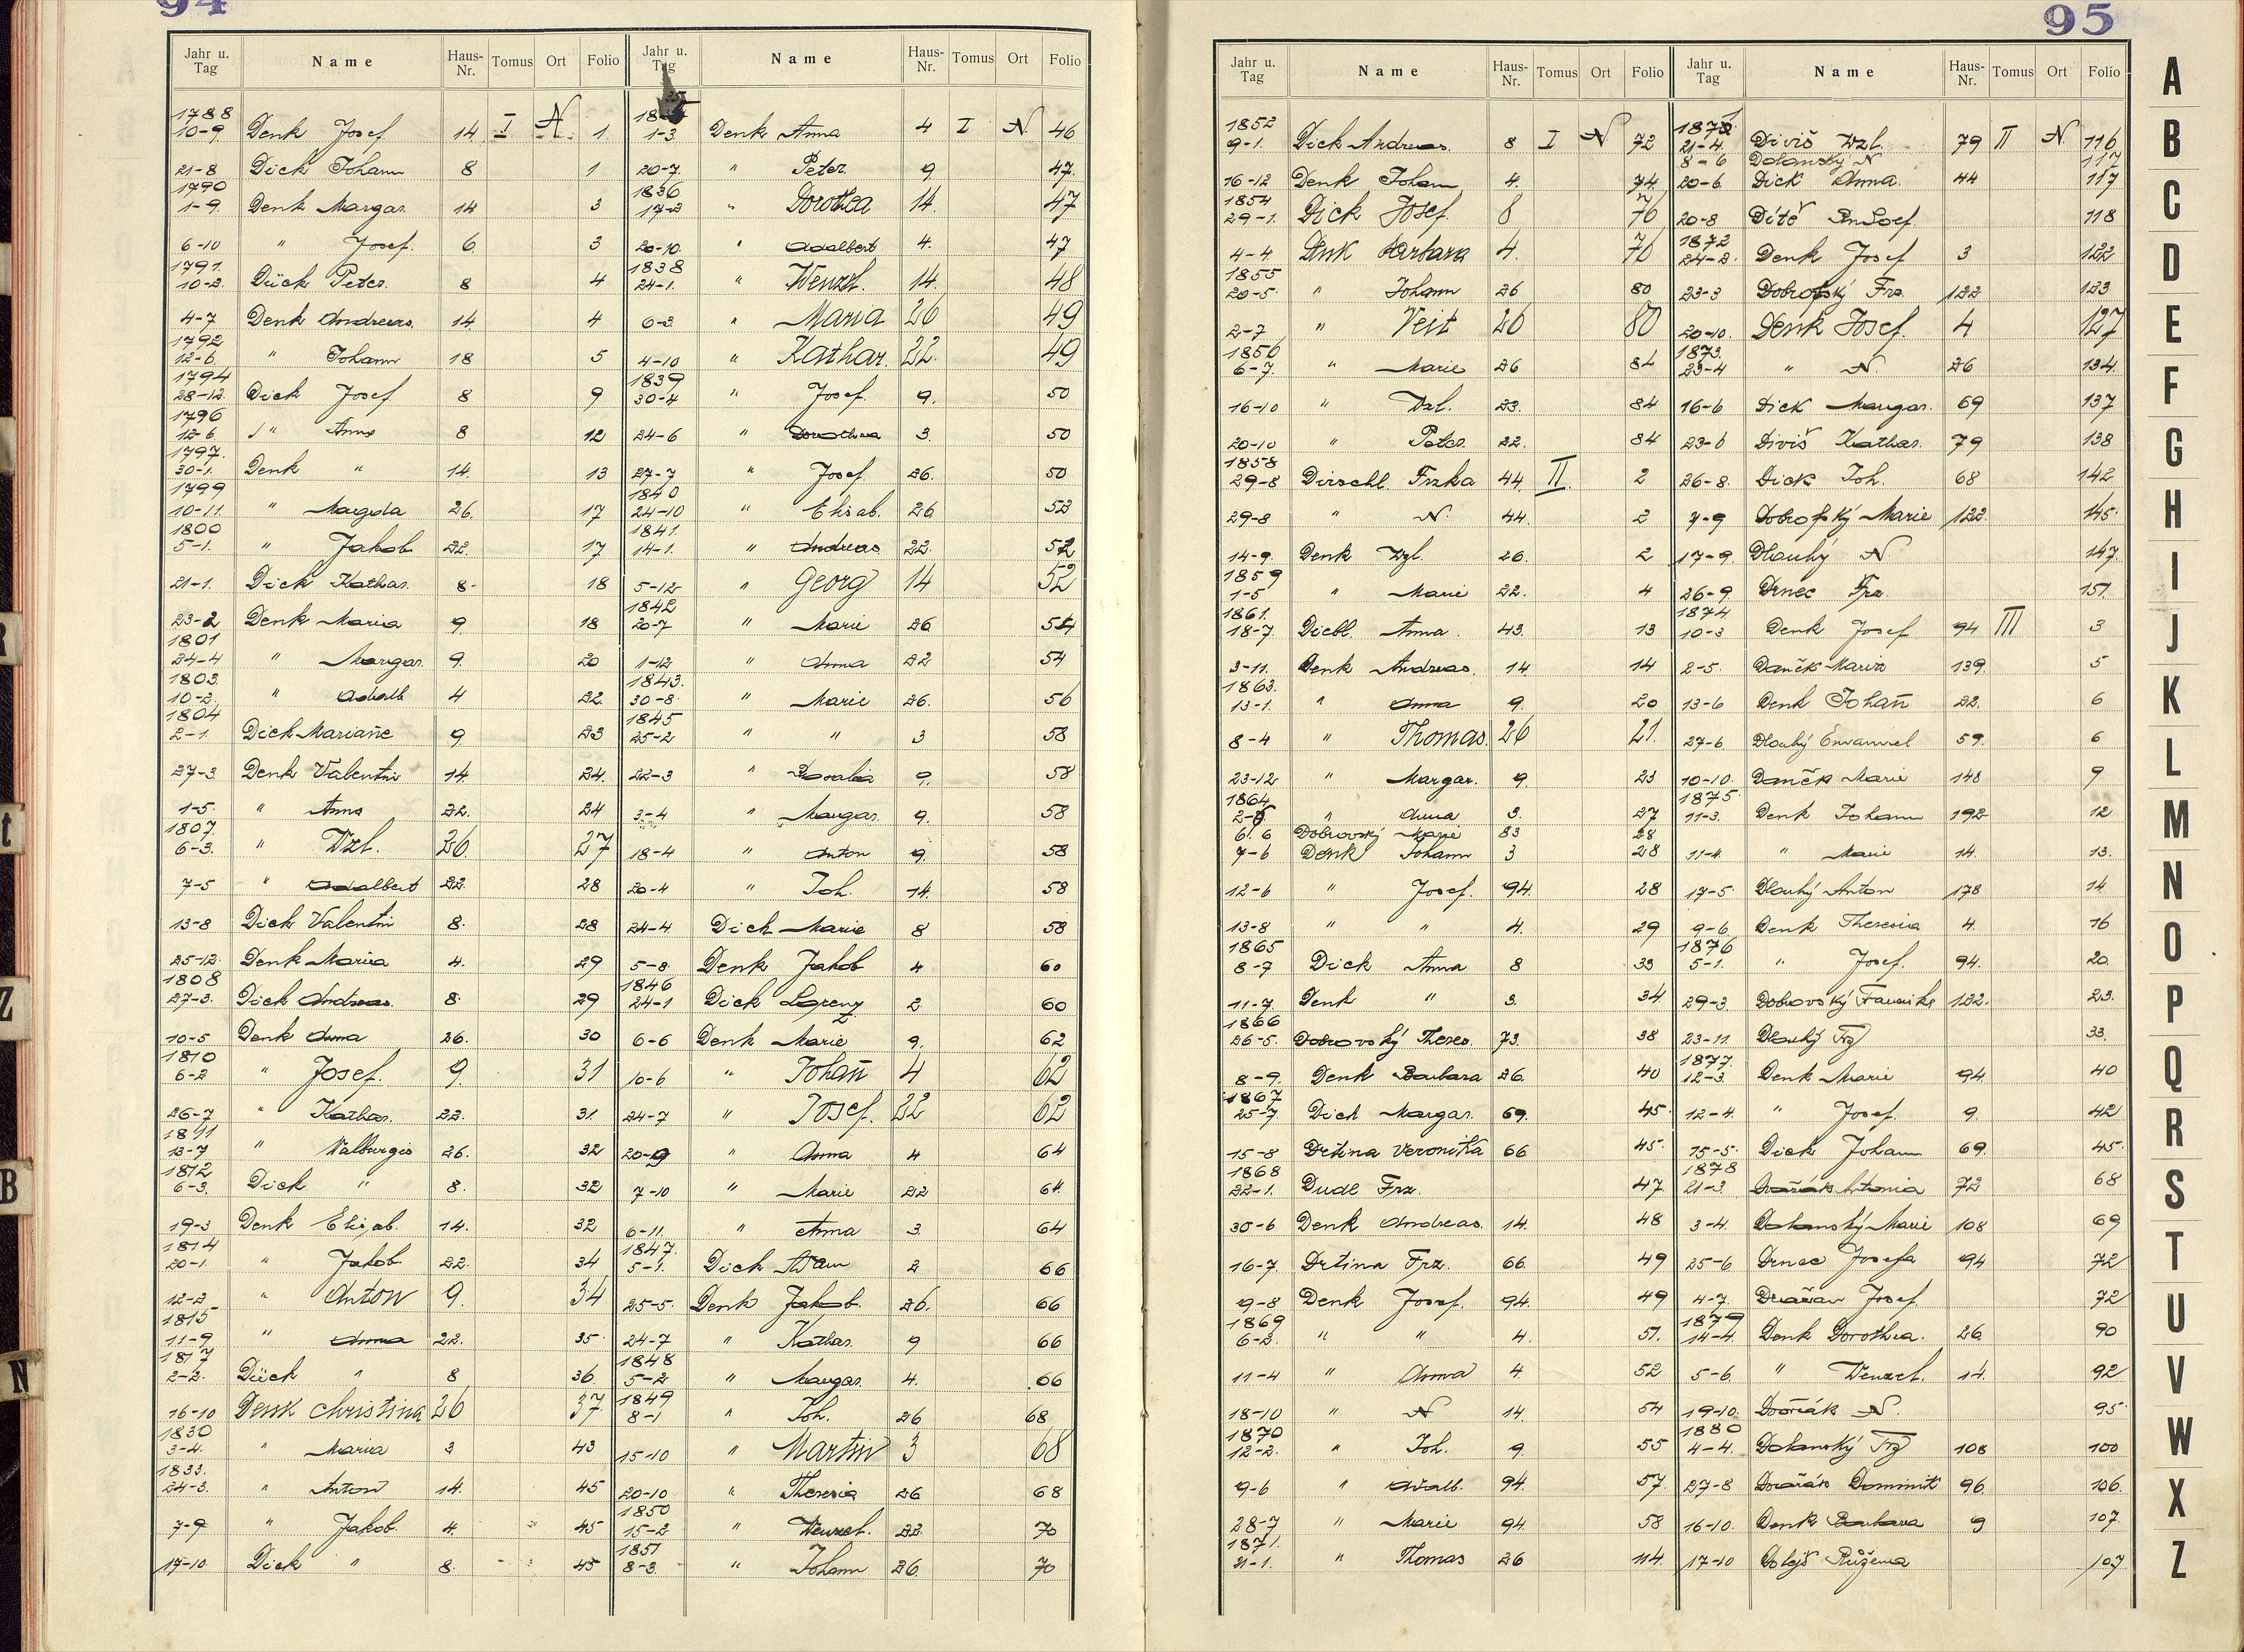 94
Jahr u. Tag Name Haus-Nr. Tomus Ort Folio
1788
10-9. Denk Josef 14. I N 1
21-8 Dick Johann 8 1
1790
1-9. Denk Margar. 14 3
6-10 " Josef. 6 3
1791.
10-2. Dück Peter. 8 4
4-7 Denk Andreas. 14 4
1792
12-6 " Johann 18 5
1794
28-12. Dick Josef 8 9
1796
12-6 " Anna 8 12
1797.
30-1. Denk " 14. 13
1799
10-11. " Magda 26. 17
1800
5-1. " Jakob 22. 17
21-1. Dick Kathar. 8. 18
23-2 Denk Maria 9. 18
1801
24-4 " Margar. 9. 20
1803.
10-2. " Adalb 4 22.
1804
2-1. Dick Marianne 9 23
27-3. Denk Valentin 14. 24.
1-5. " Anna 22. 24
1807.
6-3. " Wzl. 26. 27
7-5 " Adalbert 22. 28
13-8 Dick Valentin 8. 28
25-12. Denk Maria 4. 29
1808
27-3. Dick Andreas. 8. 29
10-5 Denk Anna 26. 30
1810
6-2 " Josef. 9. 31
26-7 " Kathar. 22. 31
1811
13-7 " Walburgis 26. 32
1812
6-3. Dick " 8. 32
19-3 Denk Elisab. 14. 32
1814
20-1. " Jakob. 22. 34
12-2 " Anton 9. 34
1815
11-9 " Anna 22. 35
1817
2-2. Dück " 8 36
16-10 Denk Christina 26 37
1830
3-4. " Maria 3 43
1833.
24-3. " Anton 14. 45
7-9 " Jakob. 4. 45
17-10. Dick " 8. 45
Jahr u. Tag Name Haus-Nr. Tomus Ort Folio
1835
1-3. Denk Anna 4 I N 46
20-7. " Peter 9 47.
1836
17-2 " Dorothea 14. 47
20-10. " Adalbert 4. 47
1838
24-1. " Wenzl. 14. 48
6-3. " Maria 26 49
4-10 " Kathar. 22. 49
1839
30-4 " Josef. 9. 50
24-6 " Dorothea 3. 50
27-7 " Josef 26. 50
1840
24-10 " Elisab. 26. 52
1841.
14-1. " Andreas 22. 52
5-12 " Georg 14 52
1842
20-7 " Marie 26 54
1-12 " Anna 22 54
1843.
30-8 " Marie 26. 56
1845
25-2 " " 3 58
22-3 " Rosalia 9. 58
3-4 " Margar. 9. 58
18-4 " Anton 9. 58
20-4 " Joh. 14. 58
24-4 Dick Marie 8 58
5-8 Denk Jakob 4 60
1846
24-1 Dick Lorenz 2 60
6-6 Denk Marie 9. 62
10-6 " Johann 4 62
24-7 " Josef. 22 62
20-9 " Anna 4 64
7-10 " Marie 22 64.
6-11. " Anna 3. 64
1847.
5-1. Dick Adam 2 66
25-5. Denk Jakob. 26. 66
24-7 " Kathar. 9 66
1848
5-2 " Margar. 4. 66
1849
8-1 " Joh. 26 68
15-10 " Martin 3 68
20-10 " Theresia 26 68
1850
15-2 " Wenzel. 22. 70
1851
8-3. " Johann 26. 70
95
Jahr u. Tag Name Haus-Nr. Tomus Ort Folio
1852
9-1. Dick Andreas. 8 I N 72
16-12 Denk Johann 4. 74.
1854
29-1. Dick Josef. 8 76
4-4 Denk Barbara 4. 76
1855
20-5. " Johann 26 80
2-7 " Veit 26 80
1856
6-7. " Marie 26 84
16-10 " Wzl. 23. 84
20-10 " Peter. 22. 84
1858
29-8 Dirschl. Frzka 44. II. 2
29-8 " N. 44. 2
14-9. Denk Wzl. 26. 2
1859
1-5 " Marie 22. 4
1861.
18-7. Diebl. Anna. 43. 13
3-11. Denk Andreas. 14. 14
1863.
13-1. " Anna 9. 20
8-4 " Thomas. 26 21.
23-12 " Margar. 9. 23
1864
2-5 " Anna 3. 27
6. 6 Dobrovský Marie 83 28
7-6 Denk Johann 3 28
12-6 " Josef. 94. 28
13-8 " " 4. 29
1865
8-7 Dick Anna 8 33
11-7. Denk " 3. 34
1866
26-5. Dobrovský Theres. 73. 38
8-9. Denk Barbara 26. 40
1867
25-7. Dick Margar. 69. 45.
15-8 Drtina Veronika 66 45.
1868
22-1. Dudl Frz. 47
30-6 Denk Andreas. 14. 48
16-7. Drtina Frz. 66. 49
9-8 Denk Josef. 94. 49
1869
6-2. " " 4. 51.
11-4 " Anna 4. 52
18-10 " N 14. 54
1870
12-2. " Joh. 9. 55
9-6 " Adalb. 94. 57
28-7 " Marie 94. 58
1871.
21-1. " Thomas 26 114.
Jahr u. Tag Name Haus-Nr. Tomus Ort Folio
1871
21-4. Diviš Wzl. 79 II N 116
8-6 Dolanský N 117
20-6. Dick Anna. 44 117
20-8 Dítě 118
1872
24-2. Denk Josef 3 122
23-3 Dobrofský Frz. 122 123
20-10. Denk Josef. 4 127
1873.
23-4 " N. 26 134.
16-6 Dick Margar. 69 137
23-6 Diviš Kathar. 79 138
26-8. Dick Joh. 68 142
7-9 Dobrofský Marie 122. 145.
17-9. Dlouhý N. 147.
26-9 Drnec Frz. 151.
1874.
10-3 Denk Josef 94 III 3
2-5. Daněk Maria 139. 5
13-6 Denk Johann 22. 6
27-6. Dlouhý Emanuel 59. 6
10-10. Daněk Marie 148 9
1875.
11-3. Denk Johann 192 12
11-4. " Marie 14. 13.
17-5. Dlouhý Anton 178 14
9-6 Denk Theresia 4. 16
1876
5-1. " Josef. 94. 20.
29-3. Dobrovský Franziska 132. 23.
23-11. Dlouhý Frz 33.
1877.
12-3 Denk Marie 94. 40
12-4. " Josef. 9. 42
15-5. Dick Johann 69. 45.
1878
21-3. Dvořák Antonia 72 68
3-4. Dolanský Marie 108 69
25-6 Drnec Josefa 94 72
4-7 Josef. 72
1879
14-4. Denk Dorothea. 26 90
5-6 " Wenzel. 14. 92
19-10. Dvořák N. 95.
1880
4-4. Dolanský Frz 108 100
27-8 Dvořák Dominik 96. 106.
16-10. Denk Barbara 9 107.
17-10 Dolejš Růžena 107
A
B
C
D
E
F
G
H
I
J
K
L
M
N
O
P
Q
R
S
T
U
V
W
X
Z